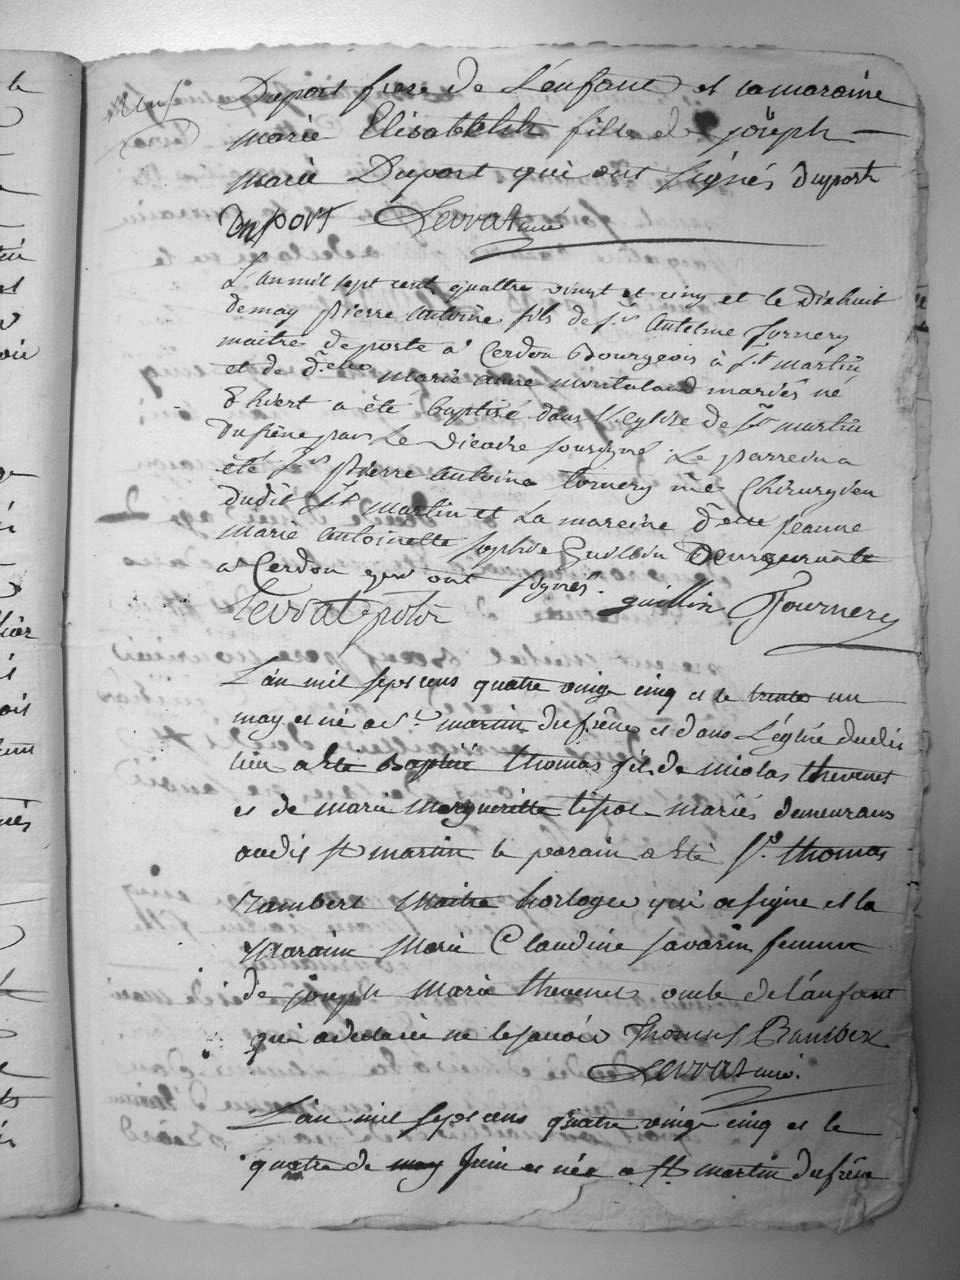 Duport frere de L'enfant et la maraine
marie Elisabeth fille de joseph
marie Duport qui ont signés duport
Duport Levrat curé
L'an mil sept cent quattre vingt et cinq et le dixhuit
demay pierre antoine fils de Sr antelme fornery
maitre de poste a Cerdon Bourgeois à St martin
et de dlle marie anne montaland mariés né
d'hiert a été baptisé dans l'Eglise de St martin
dufrêne par Le vicaire sousigné Le parrein a
été Sr pierre antoine fornery me Chirurgien
dudit St martin et La mareine dlle jeanne
marie antoinette sophie guillin demeurante
a Cerdon qui ont signés. guillin Fournery
Levrat
L'an mil sept cens quatre vingt cinq et le trente un
may est né a St martin dufrêne et dans L'églisé dudit
lieu a été Baptisé thomas fils de nicolas thevenet
et de marie margueritte tissot mariés demeurans
audit st martin le parain a été Sr thomas
Rambert maitre horloger qui a signé et la
maraine marie Claudine savarin femme
de joseph marie thevenet oncle de l'anfant
qui a declaré ne le savoir Thomas Rambert
Levrat curé.
L'an mil sept cens quatre vingt cinq et le
quatre de may juin est née a St martin dufrêne